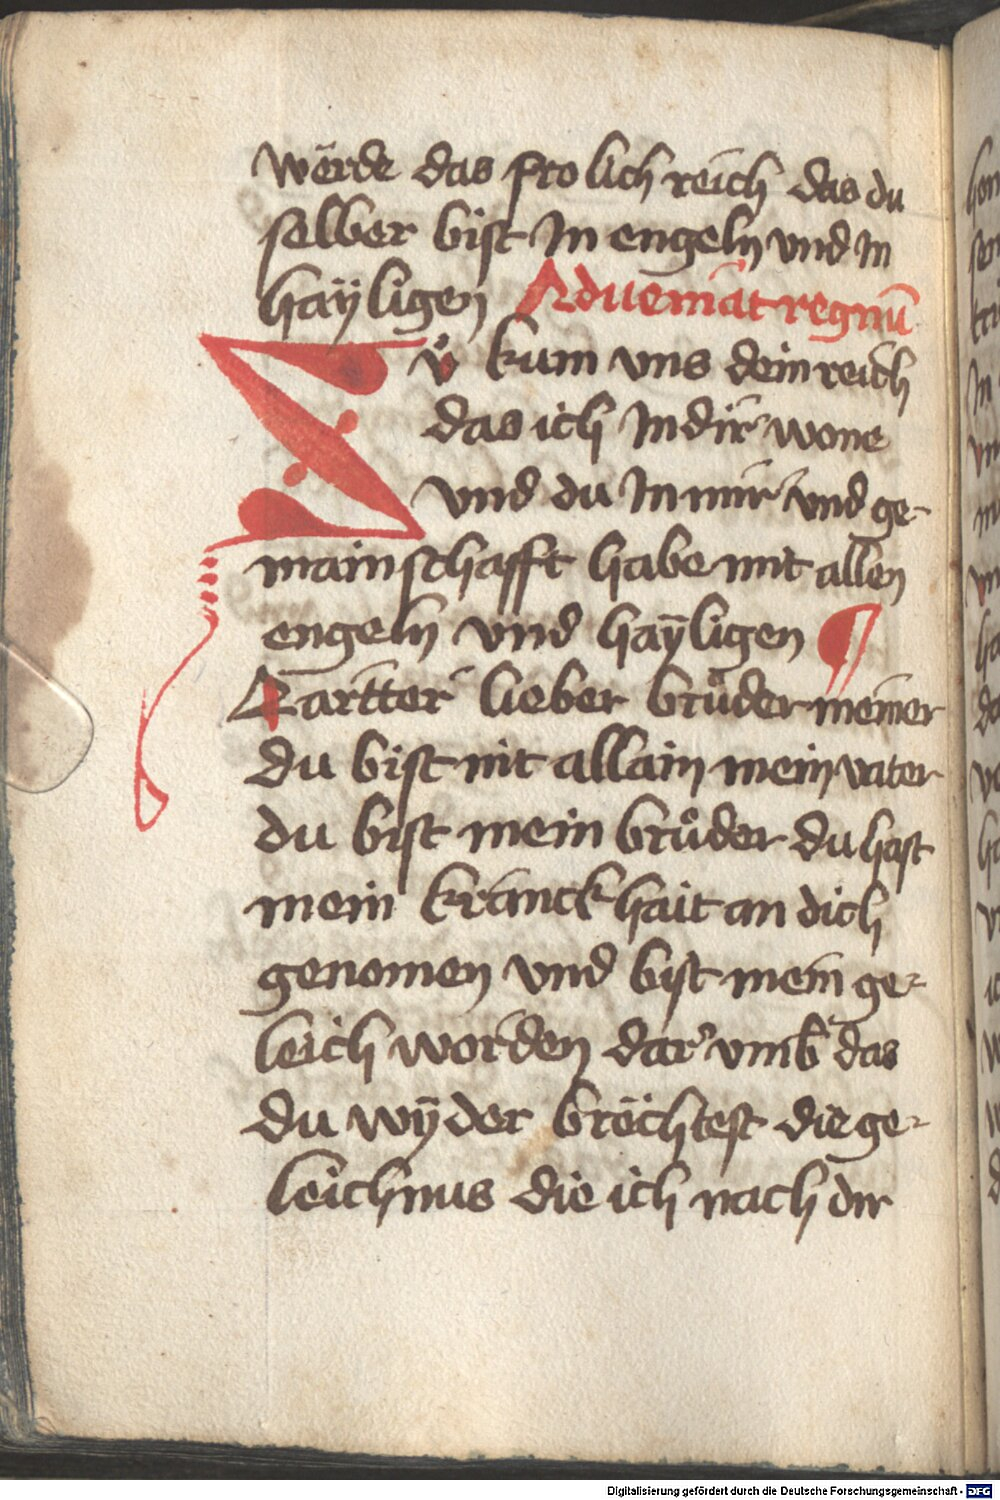 wërde das frolich reich das du
selber bist In engeln vnd In
haÿligen Adueniat regnū
Zů kum vns dein reich
das ich In dir wone
vnd du In mir vnd ge-
mainschafft habe mit allen
engeln vnd haÿligen
Zartter lieber brůder meiner
du bist nit allain mein vater
du bist mein brůder du hast
mein kranckhait an dich
genomen vnd bist mein ge-
leich worden dar vmb das
du wÿder brëchtest die ge-
leichnus die ich nach dir
Digitalisierung gefördert durch die Deutsche Forschungsgemeinschaft - DFG